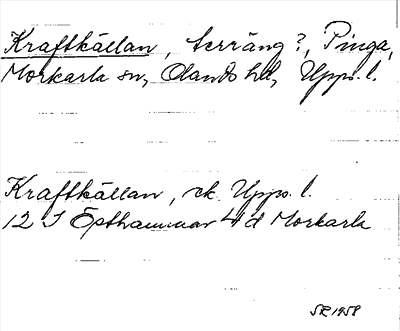 Kraftkällan, terräng?, Pinga,
Morkarla sn, Olands hd, Upps. l.
Kraftkällan, ek Upps. l.
12 I Östhammar 4 d Morkarla
SR 1958